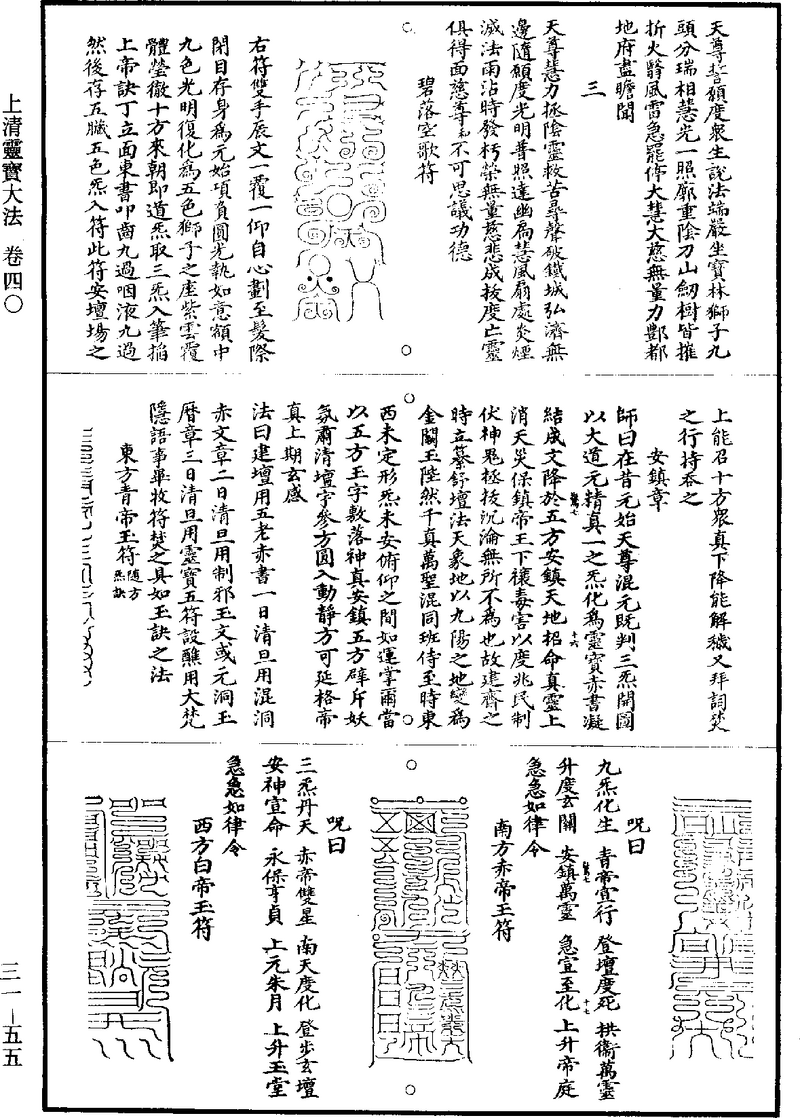 天尊誓願度衆生說法端嚴坐寶林獅子九
頭分瑞相慧光一照廓重陰刀山劒樹皆摧
折火翳風雷急罷停大慧大慈無量力酆都
地府盡瞻聞
三
天尊慧力拯陰靈救苦尋聲破鐵城弘濟無
邊隨願度光明普照達幽扃慧風扇處炎煙
滅法雨沾時發朽榮無量慈悲成拔度亡靈
俱得面慈尊不可思議功德
碧落空歌符
右符雙手展文一覆一仰自心劃至髮際
閉目存身爲元始項負圓光執如意額中
九色光明復化爲五色獅子之座紫雲覆
體瑩徹十方來朝即道炁取三炁入筆掐
上帝訣丁立面東書叩齒九過咽液九過
然後存五臟五色炁入符此符安壇場之
上能召十方衆真下降能解穢又拜詞焚
之行持泰之
安鎮章
師曰在昔元始天尊混元既判三炁開圖
以大道元精真一之炁化爲靈寶赤書凝
結成文降於五方安鎮天地招命真靈上
消天災保鎮帝王下禳毒害以度兆民制
伏神鬼拯拔沉淪無所不爲也故建齋之
時立纂舒壇法天象地以九陽之地變爲
金闕玉陛然千真萬聖混同班侍至時東
西未定形炁未安俯仰之間如運掌爾當
以五方玉字敷落神真安鎮五方辟斥妖
氛肅清壇宇參方圓入動靜方可延格帝
真上期玄感
法曰建壇用五老赤書一日清旦用混洞
赤文章二日清旦用制邪玉文或元洞玉
曆章三日清旦用靈寶五符設醮用大梵
隱語事畢收符焚之具如玉訣之法
東方青帝玉符隨方炁訣
呪曰
九炁化生 青帝宣行 登壇度死 拱衞萬靈
升度玄關 安鎮萬靈 急宣至化 上升帝庭
急急如律令
南方赤帝玉符
呪曰
三炁丹天 赤帝雙星 南天度化 登步玄壇
安神宣命 永保亨貞 上元朱月 上升玉堂
急急如律令
西方白帝玉符
上清靈寶大法 卷四〇
三一－五五